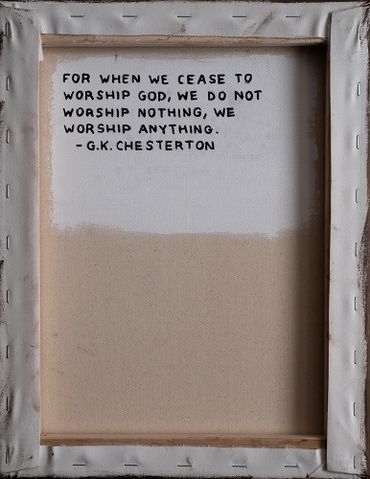 FOR WHEN WE CEASE TO
WORSHIP GOD, WE DO NOT
WORSHIP NOTHING, WE
WORSHIP ANYTHING.
- G.K. CHESTERTON